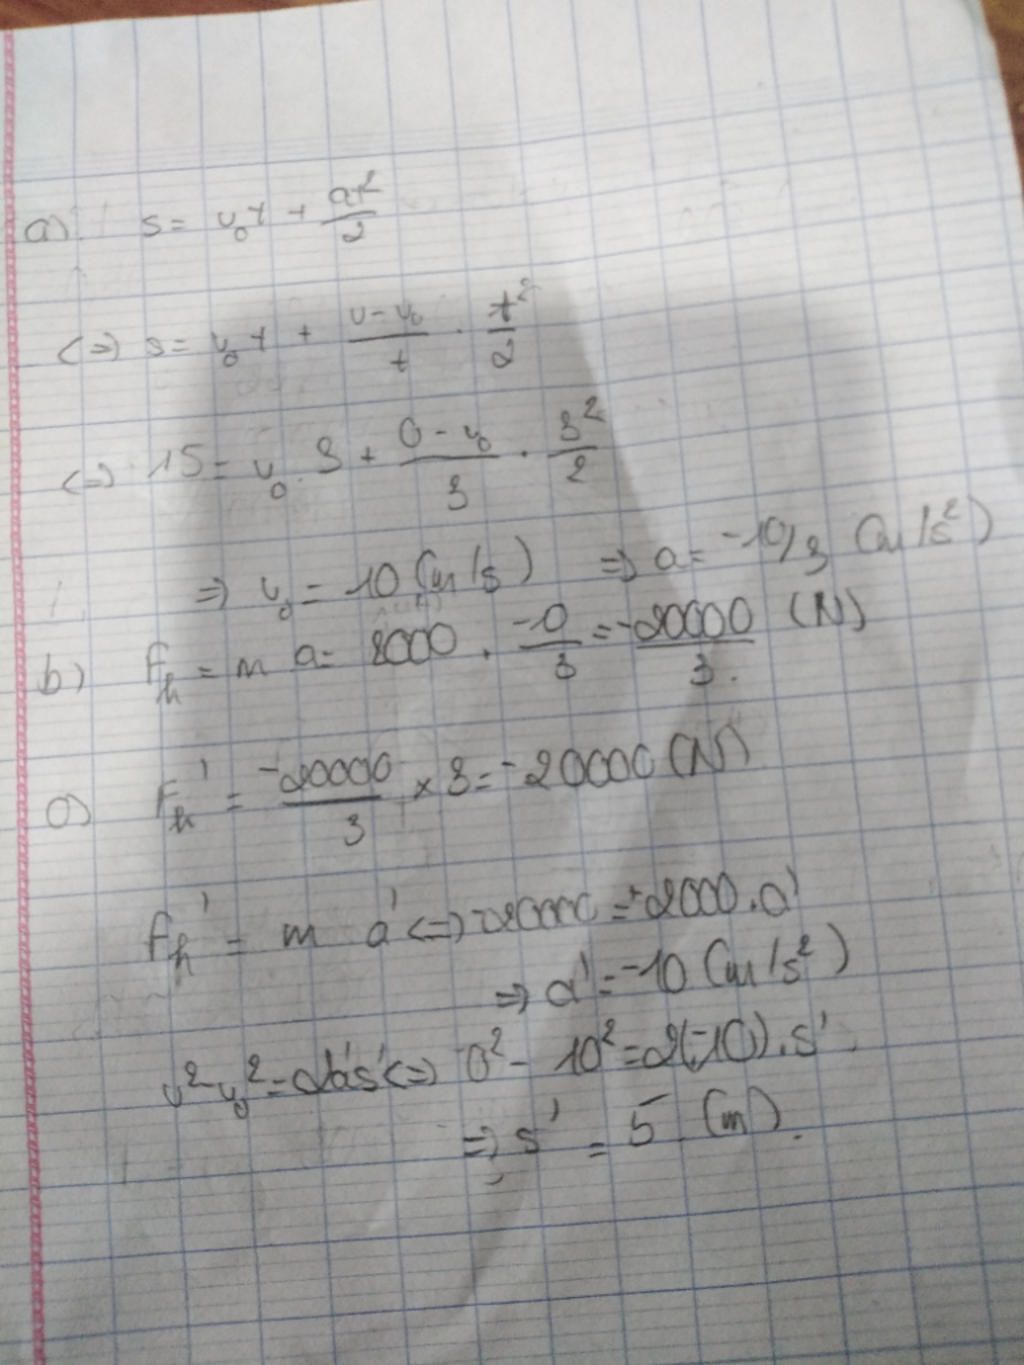 a) s = v₀t + at²/2
<=> s = v₀t + (v - v₀)/t . t²/2
<=> 15 = v₀ . 3 + (0 - v₀)/3 . 3²/2
=> v₀ = 10 (m/s) => a = -10/3 (m/s²)
b) Fₕ = m a = 2000 . -10/3 = -20000/3 (N)
c) Fₕ' = -20000/3 × 3 = -20000 (N)
Fₕ' = m a' <=> -20000 = 2000 . a'
=> a' = -10 (m/s²)
v² - v₀² = 2a's' <=> 0² - 10² = 2(-10) . s'
=> s' = 5 (m).